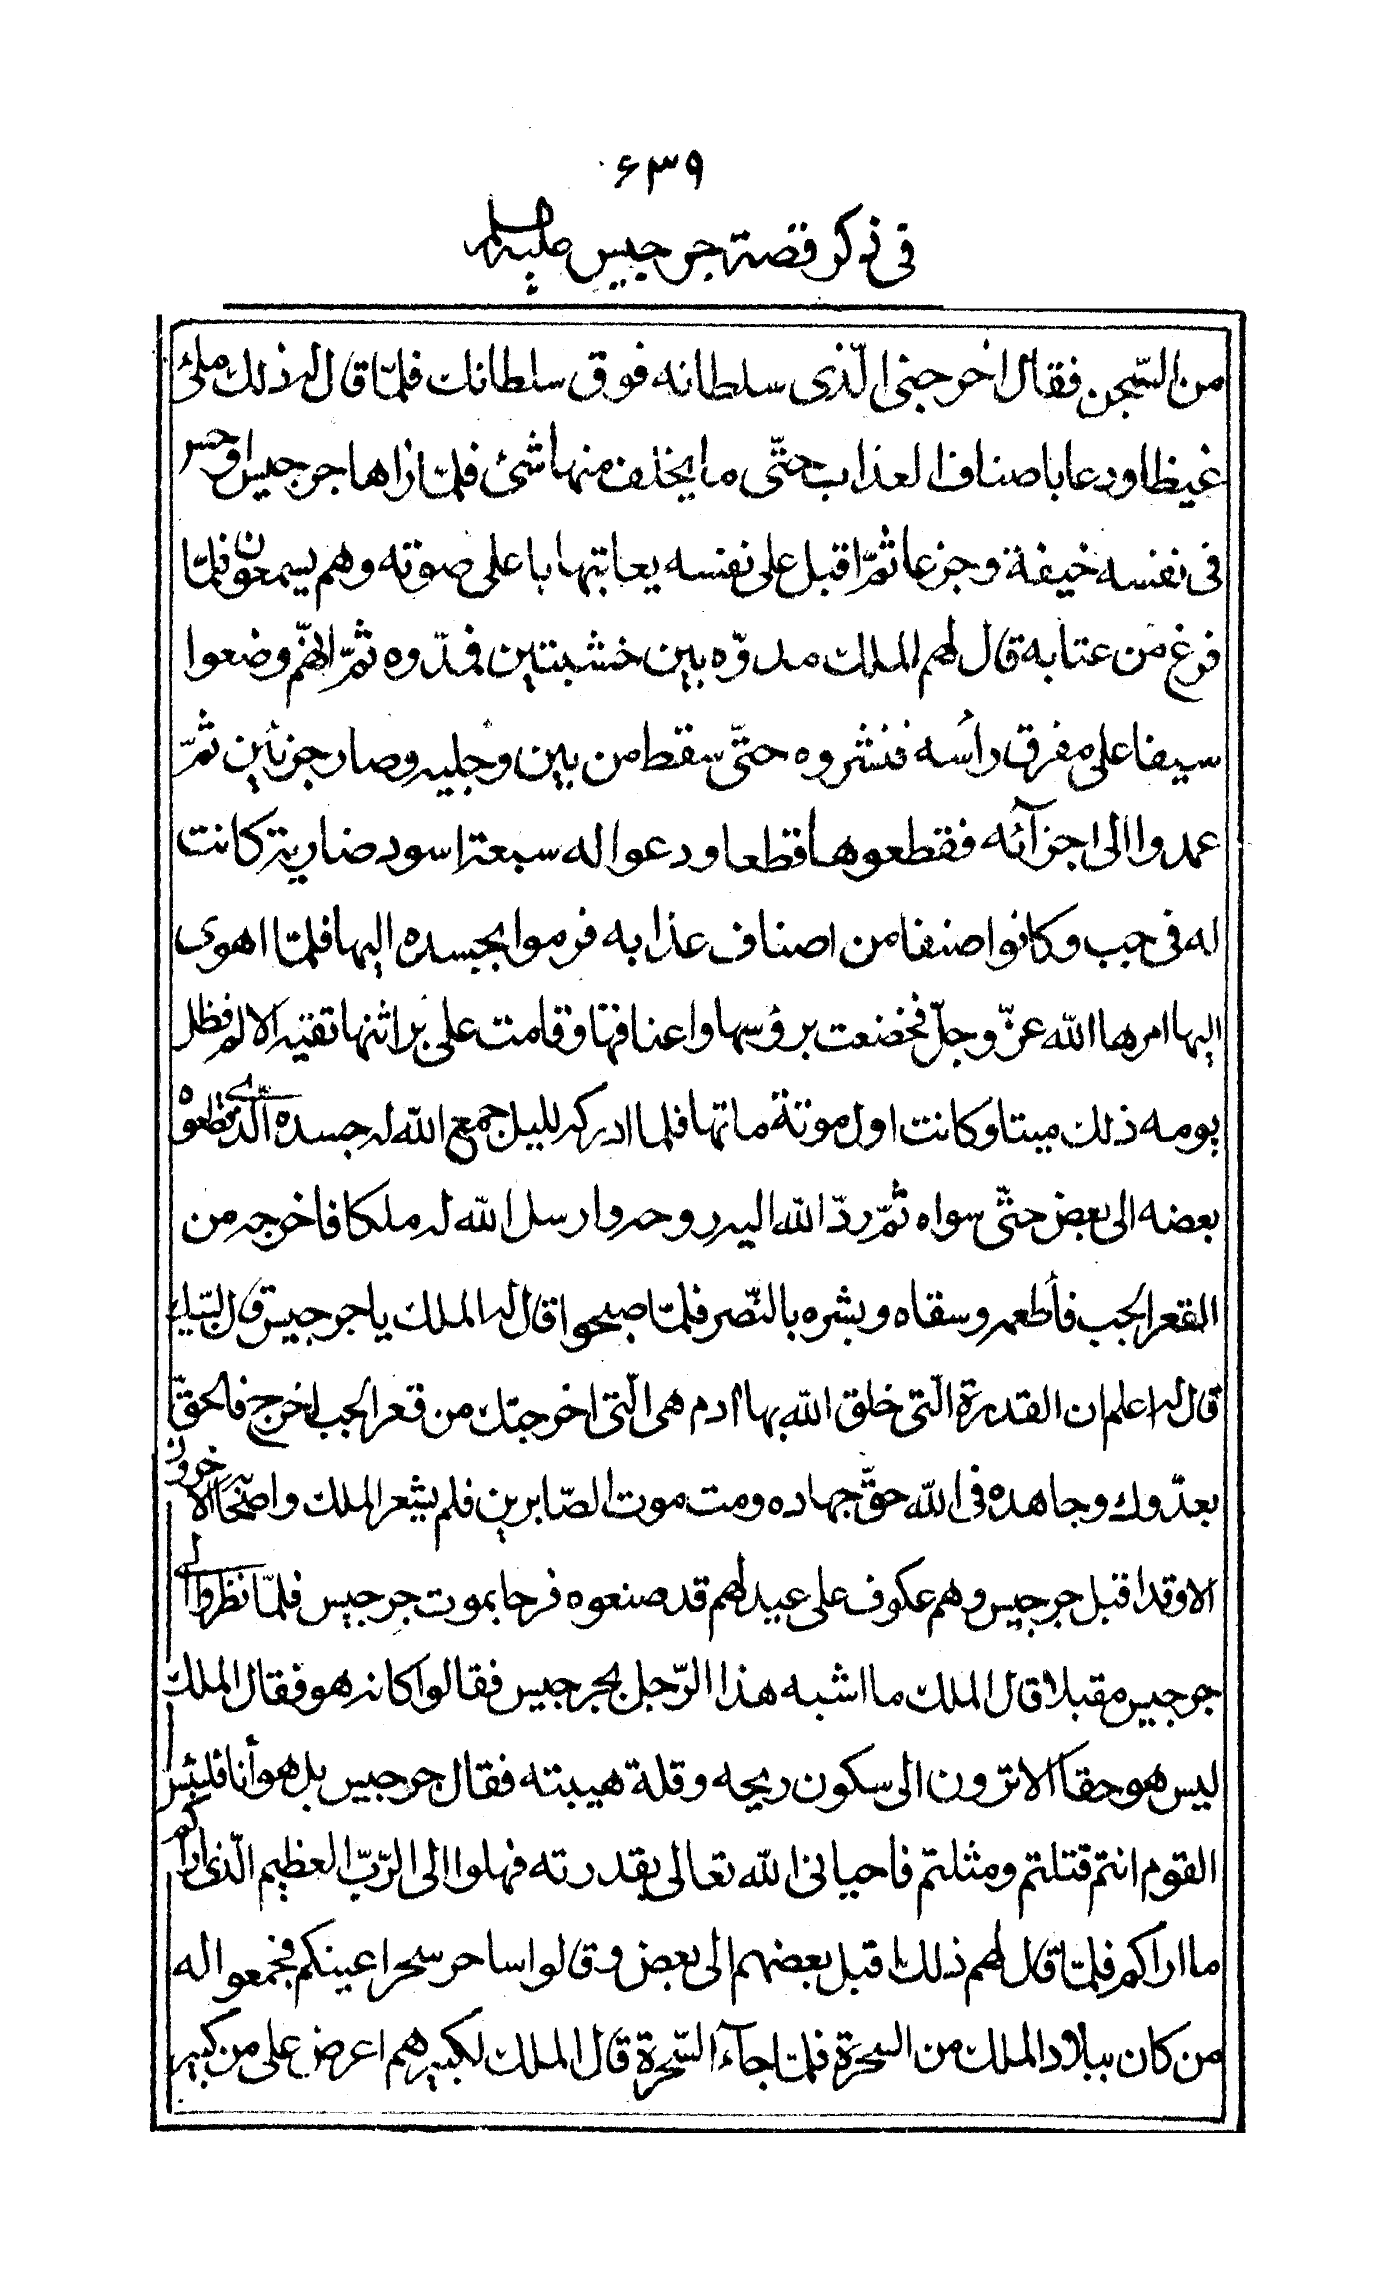 ۶۳۹
في ذكر قصة جرجيس عليه السلم
من السّجن فقال اخرجني الّذى سلطانه فوق سلطانك فلمّا قال له ذلك ملئ
غيظا ودعا باصناف العذاب حتّى ما يخلف منها شئ فلمّا راها جرجيس اوجس
فى نفسه خيفة وجزعا ثمّ اقبل على نفسه يعاتبها باعلى صوته وهم يسمعون فلمّا
فرغ من عتابه قال لهم الملك مدوّه بين خشبتين فمدّوه ثمّ انهّم وضعوا
سيفا على مفرق رأسه فنشروه حتّى سقط من بين رجليه وصار جزئين ثمّ
عمدوا الى اجزآئه فقطعوها قطعا ودعوا له سبعة اسود ضارية كانت
له فى جب وكانوا صنفا من اصناف عذابه فرموا بجسده اليها فلمّا اهوى
اليها امرها الله عزّ وجلّ فخضعت برؤسها واعناقها وقامت على براثنها تقيه الالم فظل
يومه ذلك ميتا وكانت اول موتة ماتها فلما ادركه لليل جمع الله له جسده الّذي قطعوه
بعضه الى بعض حتّى سواه ثمّ ردّ الله اليه روحه وارسل الله له ملكا فاخرجه من
القعر الجب فأطعمه وسقاه وبشره بالنّصر فلمّا صبحوا قال له الملك يا جرجيس قال لبّيك
قال له اعلم ان القدرة الّتى خلق الله بها ادم هى الّتى اخرجتك من قعر الجب اخرج فالحقّ
بعدّوك وجاهده فى الله حقّ جهاده ومت موت الصّابرين فلم يشعر الملك واصحابه الاخرون
الا وقد اقبل جرجيس وهم عكوف على عيد لهم قد صنعوه فرحا بموت جرجيس فلمّا نظروا الى
جرجيس مقبلا قال الملك ما اشبه هذا الرّجل بجرجيس فقالوا كانه هو فقال الملك
ليس هو حقا الا ترون الى سكون ريحه وقلة هيبته فقال جرجيس بل هو أنا فلبئس
القوم انتم قتلتم ومثلتم فاحيانى الله تعالى بقدرته فهلوا الى الرّبّ العظيم الّذى اراكم
ما اراكم فلمّا قال لهم ذلك اقبل بعضهم الى بعض وقالوا ساحر سحر اعينكم فجمعوا له
من كان ببلاد الملك من السحرة فلمّا جآء السّحرة قال الملك لكبيرهم اعرض على من كبير